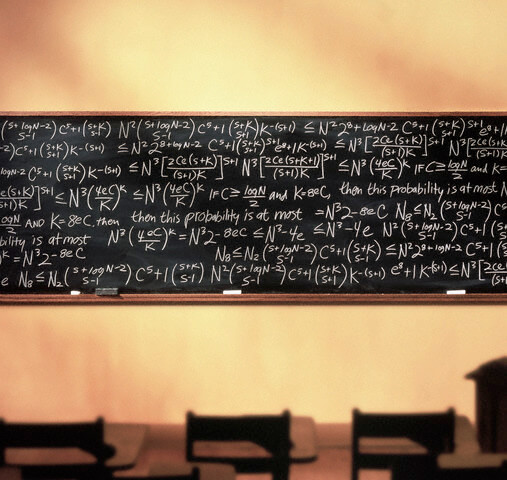 (s+logN-2 s-1) C^s+1 (s+K s+1) N^2 (s+logN-2 s-1) C^s+1 (s+K s+1) K^-(s+1) ≤ N^2 2^8+logN-2 C^s+1 (s+K s+1)^s+1 e^8+1
-2) C^s+1 (s+K s+1) K^-(s+1) ≤ N^2 2^8+logN-2 C^s+1 (s+K s+1)^s+1 e^8+1 K^-(s+1) ≤ N^3 [2Ce(s+K) (s+1)K]^s+1 N^3 [2Ce(s+K+1) (s+1)K]
logN-2 s-1) C^s+1 (s+K s+1) K^-(s+1) ≤ N^3 [2Ce(s+K) (s+1)K]^s+1 N^3 [2Ce(s+K+1) (s+1)K]^s+1 ≤ N^3 (4eC K)^K if C ≥ logN/2 and K=
e(s+K) (s+1)K]^s+1 ≤ N^3 (4eC K)^K ≤ N^3 (4eC K)^K if C ≥ logN/2 and K=8eC, then this probability is at most N
logN/2 AND K=8eC, then then this probability is at most =N^3 2^-8eC N8 ≤ N2 (s+logN-2 s-1) C^s
bility is at most N^3 (4eC K)^K = N^3 2^-8eC ≤ N^3-4e ≤ N^3-4e N^2 (s+logN-2 s-1) C^s+1 (s
K = N^3 2^-8eC N8 ≤ N2 (s+logN-2 s-1) C^s+1 (s+K s-1) ≤ N^2 2^8+logN-2 C^s+1 (s
e N8 ≤ N2 (s+logN-2 s-1) C^s+1 (s+K s-1) N^2 (s+logN-2 s-1) C^s+1 (s+K s+1) K^-(s+1) e^8+1 K^-(s+1) ≤ N^3 [2Ce (s+